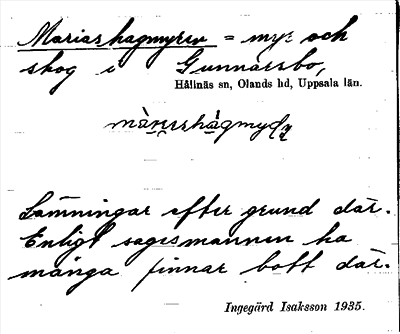 Mariashagmyren = myr och
skog i Gunnarsbo,
Hållnäs sn, Olands hd, Uppsala län.
Lämningar efter grund där.
Enligt sagesmannen ha
många finnar bott där.
Ingegärd Isaksson 1935.